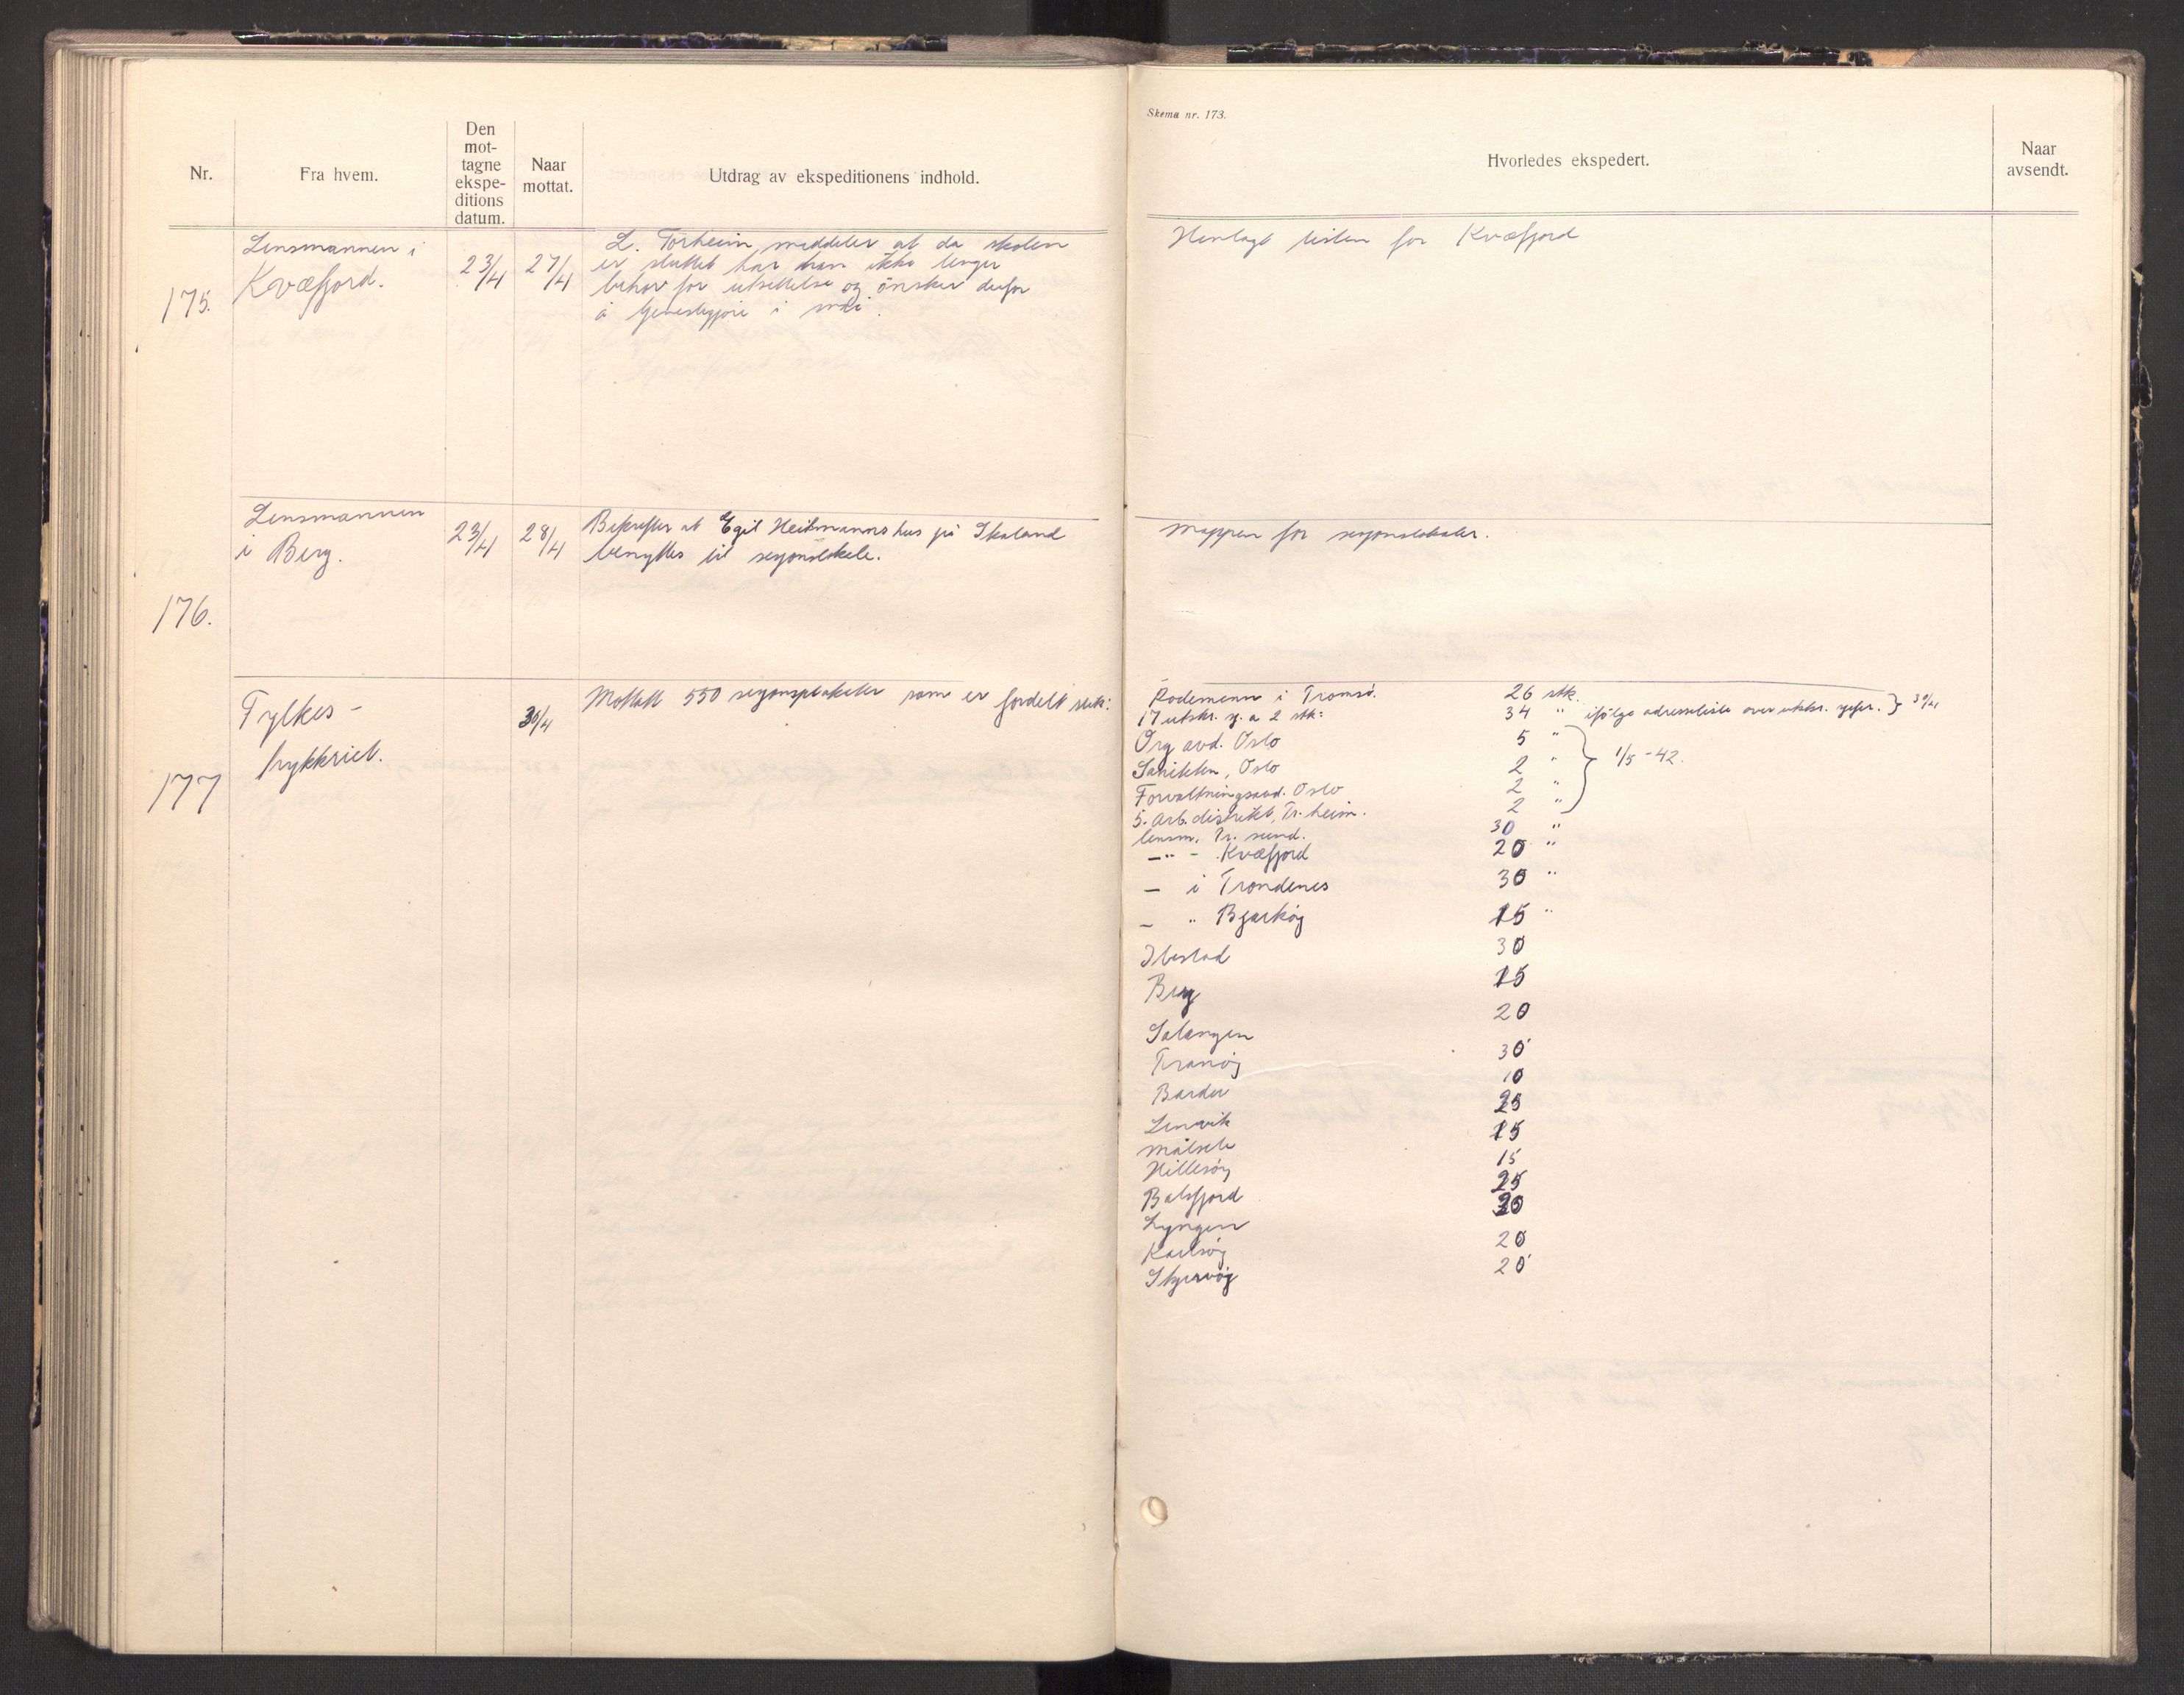 Nr.
Fra hvem.
Den
mot-
tagne
ekspe-
ditions
datum.
Naar
mottat.
Utdrag av ekspeditionens indhold.
175.
Lensmannen i
Kvæfjord.
23/4
27/4
L. Torheim, meddeler at da skolen
er sluttet har han ikke lenger
behov for utsettelse og ønsker derfor
å tjenestegjøre i mai.
176.
Lensmannen
i Berg.
23/4
28/4
Bekrefter at Egil Heitmanns hus på Skaland
benyttes til sesjonslokale.
177
Fylkes-
trykkriet.
30/4
Mottatt 550 sesjonsplakater som er fordelt slik:
Skema nr. 173.
Hvorledes ekspedert.
Naar
avsendt.
Henlagt listen for Kvæfjord
Mappen for sesjonslokaler.
Rodemenn i Tromsö. 26 stk.
17 utskr. sj. a 2 stk: 34 " ifölge adresseliste over utskr. sjefer. } 30/4
Org avd. Oslo 5 "
Saniteten, Oslo 2 " } 1/5-42.
Forvaltningsavd. Oslo 2 "
5. Arb. distrikt, Tr. heim. 2 "
lensm. Tr. sund. 30 "
—"— Kvæfjord 20 "
— i Trondenes 30 "
— " Bjarköy 15 "
Ibestad 30
Berg 15
Salangen 20
Tranöy 30
Bardu 10
Lenvik 25
Målselv 15
Hillesöy 15
Balsfjord 25
Lyngen 30
Karlsöy 20
Skjervöy 20